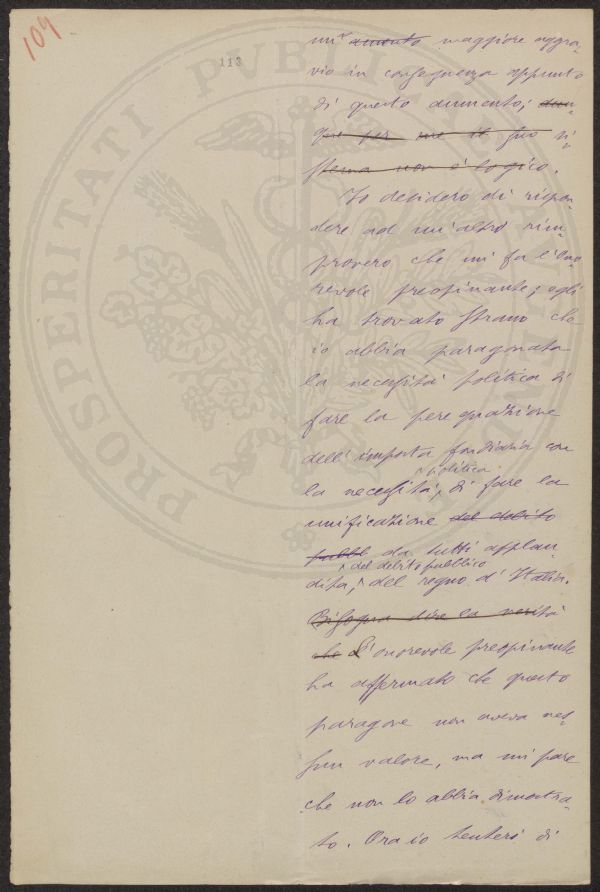 109
113
PROSPERITATI PVBLICAE AVGENDAE
un ~~aumento~~ maggiore aggra-
vio in conseguenza appunto
di questo aumento; ~~dun-~~
~~que per me il suo si-~~
~~stema non è logico.~~
Io desidero di rispon-
dere ad un altro rim-
provero che mi fa l'ono-
revole preopinante; egli
ha trovato strano che
io abbia paragonata
la necessità politica di
fare la perequazione
dell'imposta fondiaria con
la necessità, politica di fare la
unificazione ~~del debito~~
~~pubbl~~ da tutti applau-
dita, del debito pubblico del regno d'Italia.
~~Bisogna dire la verità~~
~~che~~ L'onorevole preopinante
ha affermato che questo
paragone non aveva nes-
sun valore, ma mi pare
che non lo abbia dimostra-
to. Ora io tenterò di